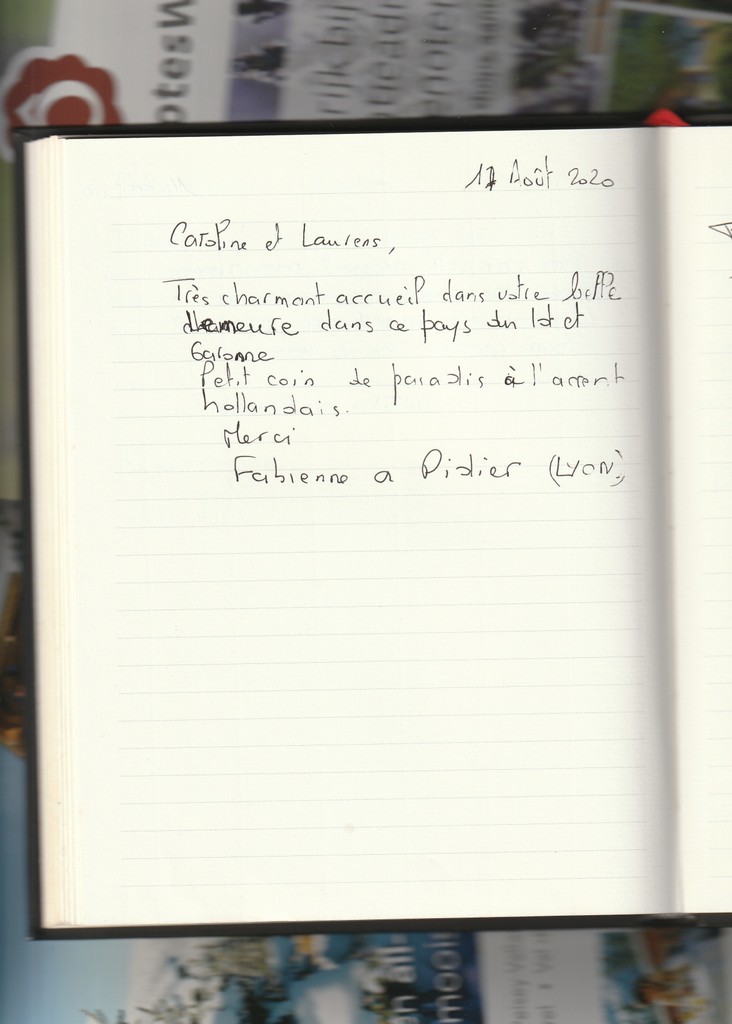 otesW
rijk bij
Août 2020
Caroline et Laurens,
Très charmant accueil dans votre belle
demeure dans ce pays du lot et
Garonne
Petit coin de paradis à l'accent
hollandais.
Merci
Fabienne a Didier (LYON)
en all
mooi